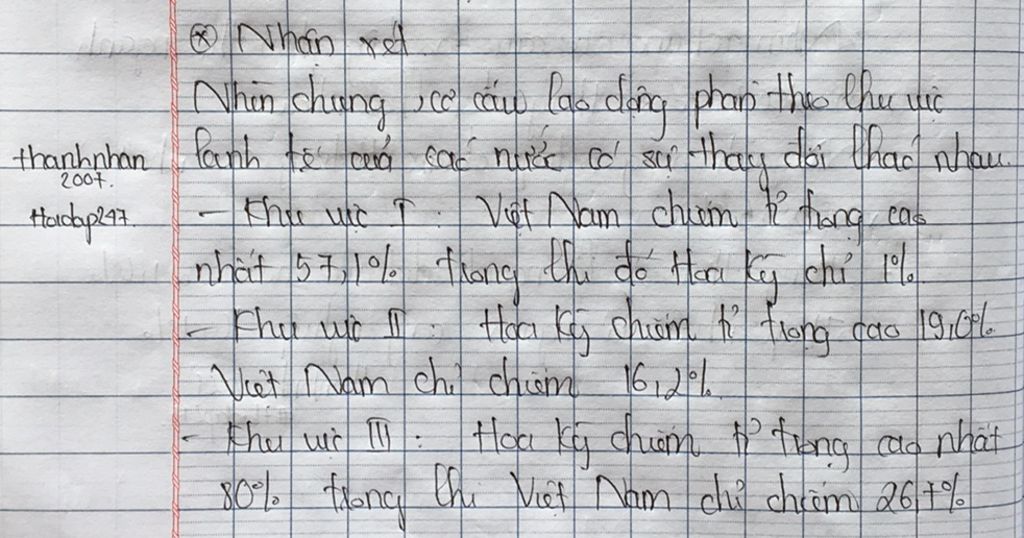 ⊛ Nhận xét
Nhìn chung, cơ cấu lao động phân theo khu vực
thanhnhan
kinh tế của các nước có sự thay đổi khác nhau.
2007.
Hoidap247.
- Khu vực I : Việt Nam chiếm tỉ trọng cao
nhất 57,1% trong khi đó Hoa Kỳ chỉ 1%.
- Khu vực II : Hoa Kỳ chiếm tỉ trọng cao 19,0%
Việt Nam chỉ chiếm 16,2%.
- Khu vực III : Hoa Kỳ chiếm tỉ trọng cao nhất
80% trong khi Việt Nam chỉ chiếm 26,7%